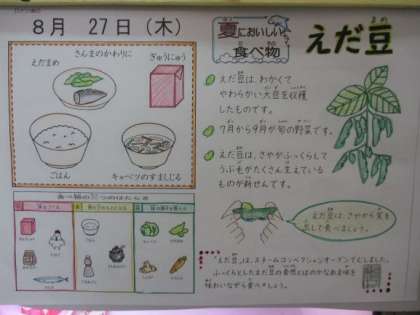 8月 27日(木)
さんまのかわりに
えだまめ
ぎゅうにゅう
ごはん
キャベツのすましじる
夏においしい
食べ物
えだ豆
まめ
えだ豆は、わかくて
やわらかい大豆を収穫
したものです。
7月から9月が旬の野菜です。
えだ豆は、さやがふっくらして
うぶ毛がたくさん生えている
ものが新せんです。
えだ豆は、さやから実を
出して食べましょう。
「えだ豆」は、スチームコンベクションオーブンでむしました。
ふっくらとしたえだ豆の自然とほのかなあま味を
味わいながら食べましょう。